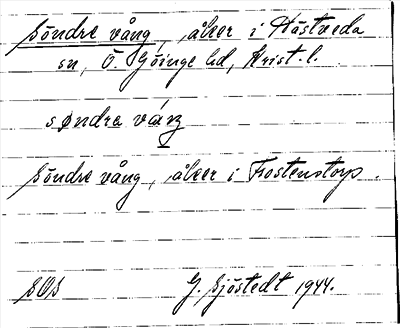 Söndre vång, åker i Hästveda
sn, Ö. Göinge hd, Krist. l.
søndra váng
Söndre vång, åker i Frostentorp.
SOS G. Sjöstedt 1944.